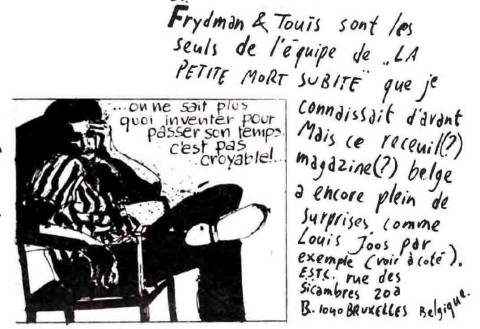 Frydman & Touïs sont les
seuls de l'équipe de „LA
PETITE MORT SUBITE" que je
connaissait d'avant
Mais ce receuil(?)
magazine(?) belge
a encore plein de
surprises comme
Louis Joos par
exemple (voir à coté).
ESTC. rue des
Sicambres 20a
B.1040 BRUXELLES Belgique.
...on ne sait plus
quoi inventer pour
passer son temps
c'est pas
croyable!...